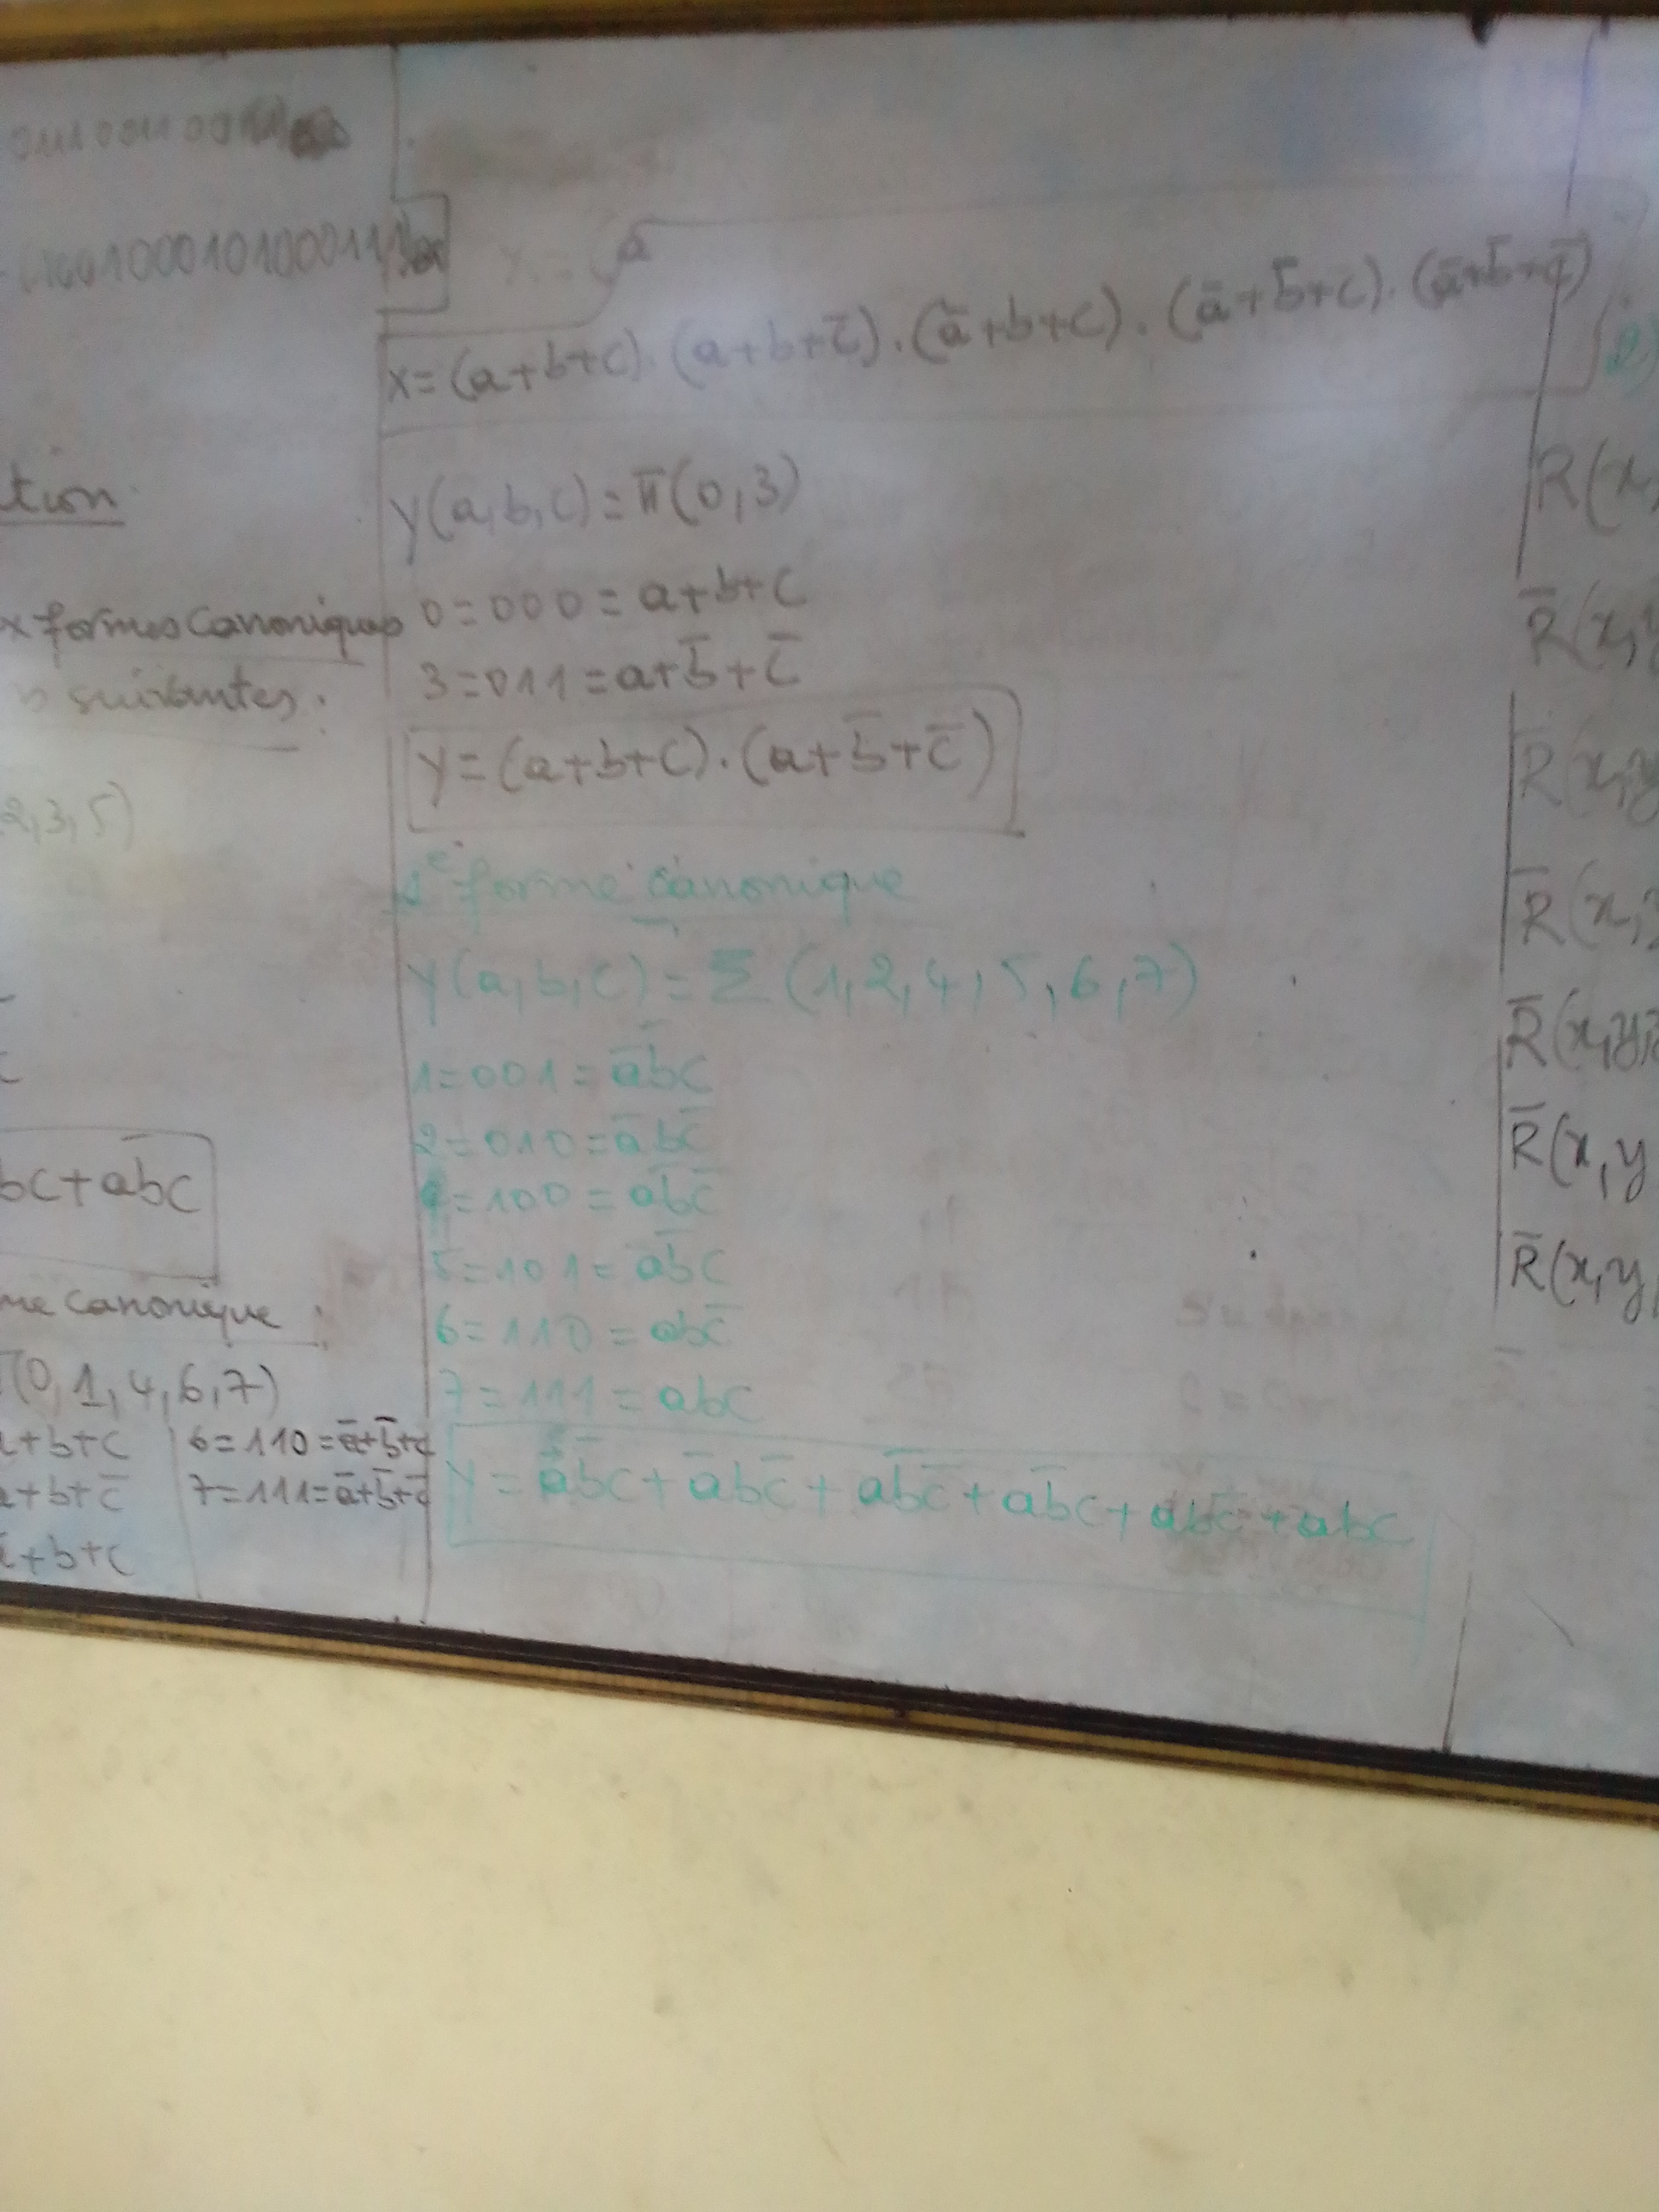 10010001010001
x=(a+b+c).(a+b+c̄).(ā+b+c).(ā+b̄+c).(ā+b̄+c̄)
tion
x formes Canoniques
suivantes.
2,3,5)
bc+ab̄c
me canonique :
(0,1,4,6,7)
a+b+c
a+b+c̄
+b+c
6=110=ā+b̄+c
7=111=ā+b̄+c̄
y(a,b,c)=π(0,3)
0=000=a+b+c
3=011=a+b̄+c̄
y=(a+b+c).(a+b̄+c̄)
1e forme canonique
y(a,b,c)=Σ(1,2,4,5,6,7)
1=001=āb̄c
2=010=ābc̄
4=100=ab̄c̄
5=101=ab̄c
6=110=abc̄
7=111=abc
y=āb̄c+ābc̄+ab̄c̄+ab̄c+abc̄+abc
R(x,
R̄(x,y
R̄(x,y
R̄(x,
R̄(x,y,
R̄(x,y
R̄(x,y,